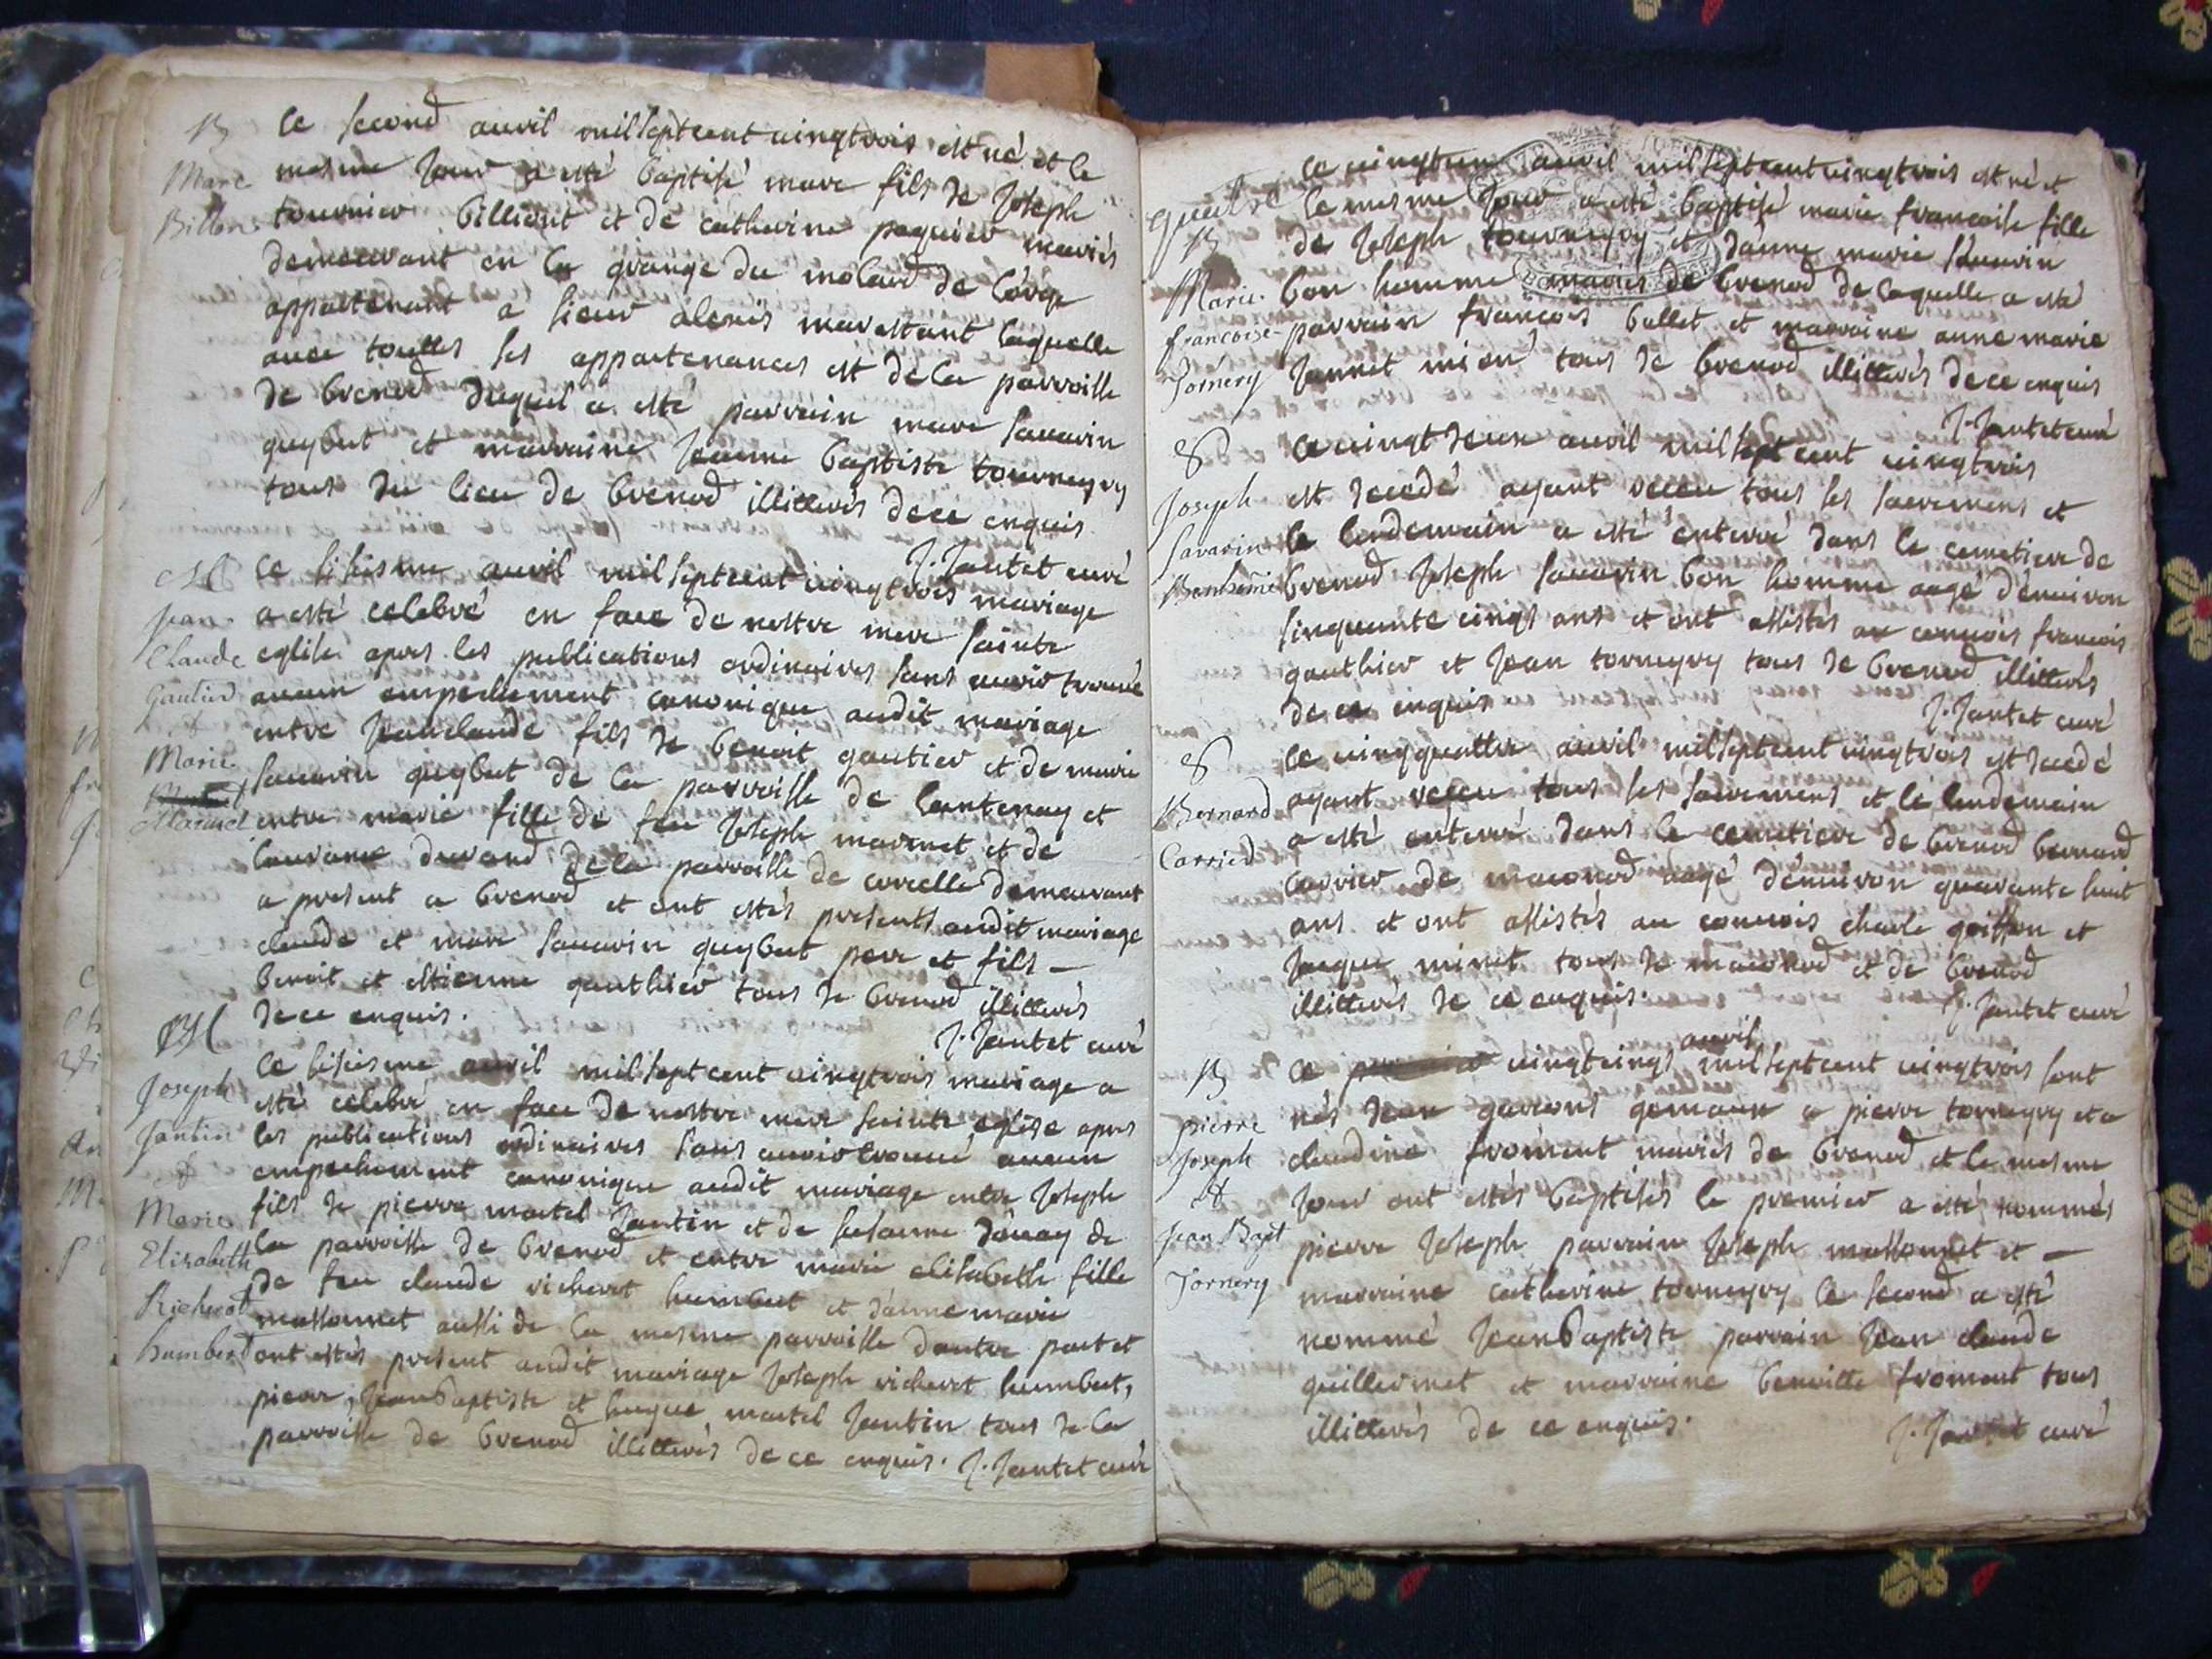 B
Marc
Billon
le second auvil mil sept cent vingt trois est né et le
mesme jour a esté baptisé marc fils de Joseph
tournier billiont et de catherine paquier mariés
demeurant en la grange du molard de lorge
appartenant a sieur alexis marestant laquelle
avec touttes ses appartenances est de la parroisse
de brenod duquel a esté parrain marc savarin
guybut et marraine Jeanne baptiste tourneyry
tous du lieu de brenod illitterés de ce enquis
J. Jantet curé
M
Jean
Claude
Gautier
&
Marie
Marinet
le sisiesme auvil mil sept cent vingt trois mariage
a esté celebré en face de nostre mere sainte
eglise apres les publications ordinaires sans avoir trouvé
aucun empechement canonique audit mariage
entre Jean claude fils de benoit gautier et de marie
savarin guybut de la parroisse de lantenay et
entre marie fille de feu Joseph marinet et de
laurance durand de la parroisse de corcelle demeurant
a present a brenod et ont estés presents audit mariage
claude et marc savarin guybut pere et fils —
benoit et estienne gauthier tous de brenod illitterés
de ce enquis.
J. Jantet curé
M
Joseph
Jantin
&
Marie
Elizabeth
Richerot
humbert
le sisiesme auvil mil sept cent vingt trois mariage a
esté celebré en face de nostre mere sainte eglise apres
les publications ordinaires sans avoir trouvé aucun
empechement canonique audit mariage entre Joseph
fils de pierre martel Jantin et de susanne dávay de
la parroisse de brenod et entre marie elisabeth fille
de feu claude richerot humbert et d'anne marie
massonnet aussi de la mesme parroisse d'autre part et
ont estés present audit mariage Joseph richerot humbert,
pierre, Jean baptiste et hugue martel Jantin tous de la
parroisse de brenod illitterés de ce enquis. J. Jantet curé
quatre
B
Marie
francoise
Tornery
le vingt un auvil mil sept cent vingt trois est né et
le mesme jour a esté baptisé marie francoise fille
de Joseph tourneyry et d'anne marie savarin
bon homme mariés de brenod de laquelle a esté
parrain francois ballet et marraine anne marie
Jannet tous de brenod illitterés de ce enquis
J. Jantet curé
S
Joseph
Savarin
Bonhome
le vingt deux auvil mil sept cent vingt trois
est decedé ayant receu tous les sacremens et
le lendemain a esté enterré dans le cemetiere de
brenod Joseph savarin bon homme aagé d'environ
sinquante cinq ans et ont assistés au convois francois
gauthier et Jean torneyry tous de brenod illitterés
de ce enquis
J. Jantet curé
S
Bernard
Carrier
le vingquattre auvil mil sept cent vingt trois est decedé
ayant receu tous les sacremens et le lendemain
a esté enterré dans le cemetiere de brenod bernard
carrier de maconod aagé d'environ quarante huit
ans et ont assistés au convois charle goiffon et
Jaque minet tous de maconod et de brenod
illitterés de ce enquis.
J. Jantet curé
B
pierre
Joseph
&
Jean Bapt
Tornery
auvil
le vingt cinq mil sept cent vingt trois sont
nés deux garcons gemaux a pierre torneyry et a
claudine froment mariés de brenod et le mesme
jour ont estés baptisés le premier a esté nommés
pierre Joseph parrain Joseph massonnet et —
marraine catherine torneyry le second a esté
nommé Jean baptiste parrain Jean claude
guillermet et marraine benoitte froment tous
illitterés de ce enquis.
J. Jantet curé